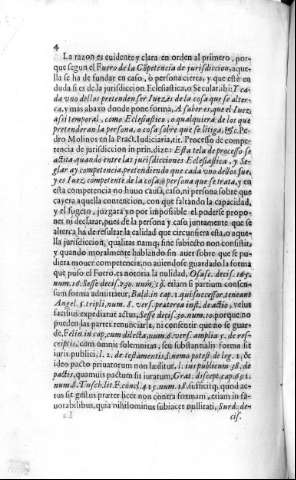 4
La razon es euidente y clara en orden al primero, por-
que segun el Fuero de la Cõpetencia de jurisdiccion, aque-
lla se ha de fundar en caso, ò persona cierta, y que esté en
duda si es de la jurisdiccion Eclesiastica, o Secular. ibi: T ca-
da vno dellos pretenden ser Iuezes de la cosa que se alter-
ca, y mas abaxo donde pone forma, A saber es, que el Iuez
assi temporal, como Eclesiastico, o qualquiera de los que
pretenderan la persona, o cosa sobre que se litiga, &c. Pedro
Molinos en la Pract. Iudiciaria, tit. Processo de compe-
tencia de jurisdiccion in prin. dize: Esta tela de processo se
actita quando entre las jurisdicciones Eclesiastica, y Se-
glar ay competencia, pretendiendo que cada vno dellos sue,
y es Iuez competente de la cosa, o persona que se trata, y en
esta competencia no huuo causa, caso, ni persona sobre que
cayera aquella contencion, con que faltando la capacidad,
y el sugeto, juzgara yo por impossible el poderse propo-
ner ni declarar, pues de la persona y caso juntamente que se
alterca, ha de resultar la calidad que circunsera esta, o aque-
lla jurisdiccion, qualitas namq; sine subiecto non consistit,
y quando moralmente hablando sin auer sobre que se pu-
diera mouer competencia, no auiendose guardado la forma
que puso el Fuero, es notoria la nulidad, Osasc. decis. 163.
num. 16. Sesse decis. 230. num. 19. etiam si partium consen-
sum forma admittatur, Bald. in cap. 1. qui successor. teneant
Angel. §. tripli, num. 8. vers. præterea inst. de actio, vel ut
facilius expediatur actus, Sesse decis. 30. num. 10. porque no
pueden las partes renunciarla, ni consentir que no se guar-
de, Felin. in cap. cum dilecta, num. 8. vers. amplia 5. de res-
criptis, cum omnis solemnitas, seu substantialis forma sit
iuris publici, l. 2. de testamentis, l. nemo potest de leg. 1. &
ideo pacto priuatorum non læditur, l. ius publicum 38. de
pactis, quamuis pactum sit iuratum, Grat. discept. cap. 651.
num. 8. Tusch. lit. F. concl. 425. num. 18. sufficitq; quod ac-
tus sit gestus præter licet non contra formam, etiam in fa-
uorabilibus, quia nihilominus subiacet nullitati, Surd. de-
cis.